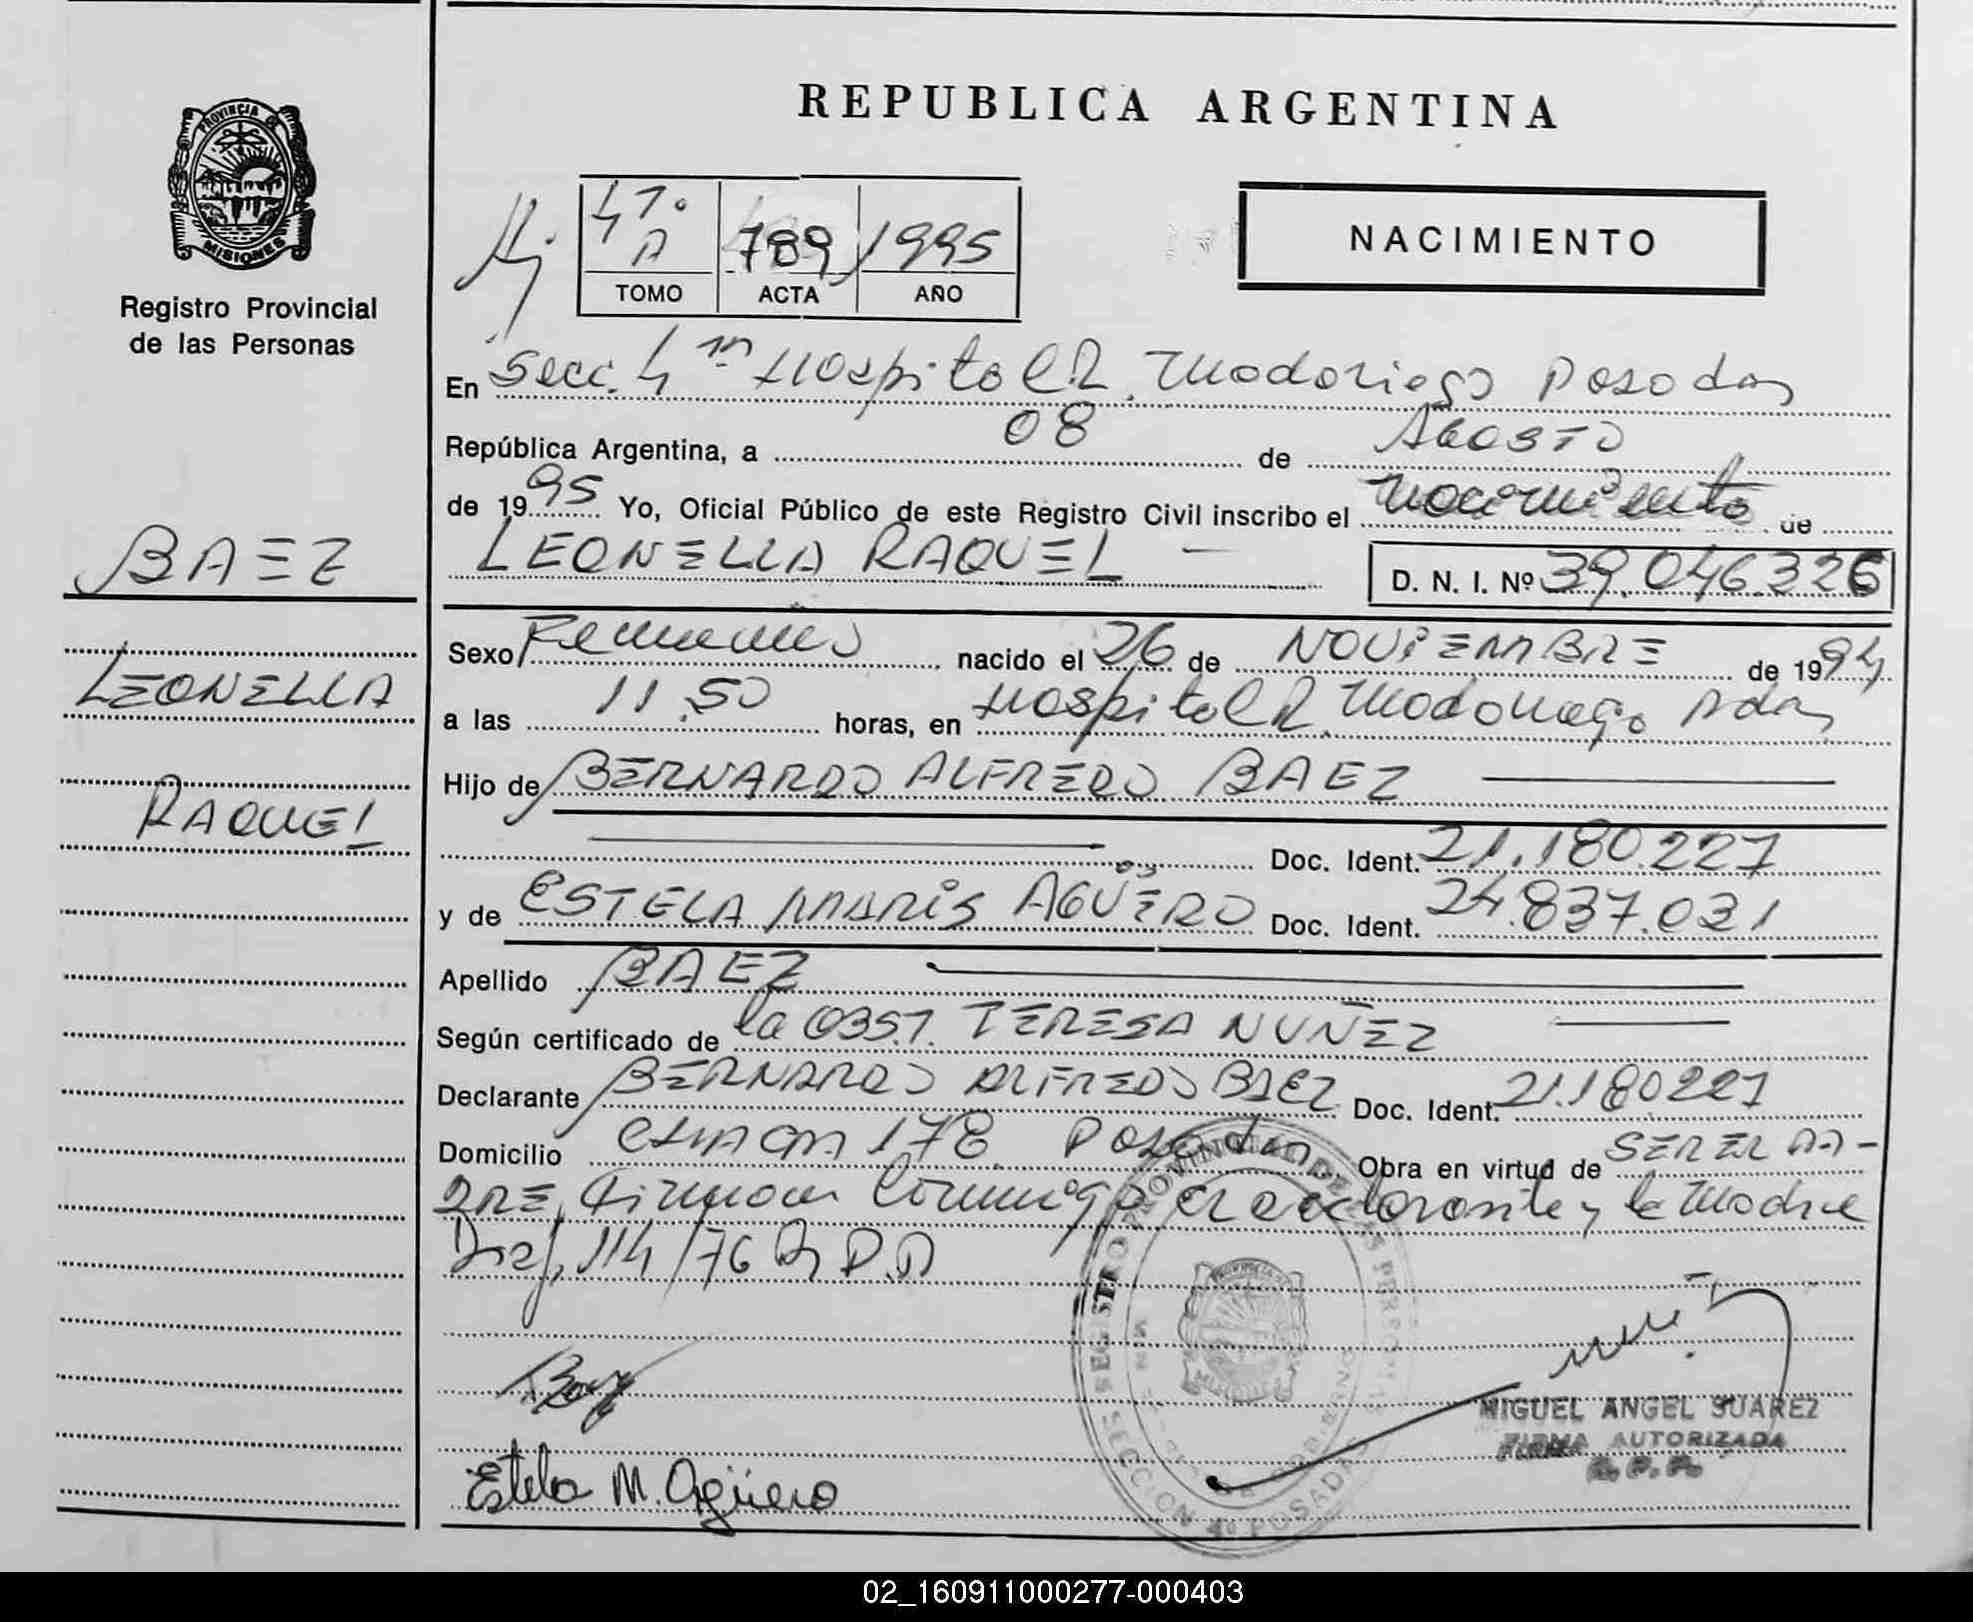 REPUBLICA ARGENTINA
PROVINCIA DE
MISIONES
Registro Provincial
de las Personas
4º
A
789
1995
TOMO
ACTA
AÑO
NACIMIENTO
En Secc. 4ta Hospital R. Madariaga Posadas
República Argentina, a 08 de AGOSTO
de 1995 Yo, Oficial Público de este Registro Civil inscribo el nacimiento de
LEONELLA RAQUEL —
D. N. I. Nº 39.046.326
BAEZ
LEONELLA
RAQUEL
Sexo Femenino nacido el 26 de NOVIEMBRE de 1994
a las 11.50 horas, en Hospital R. Madariaga Pdas
Hijo de BERNARDO ALFREDO BAEZ
Doc. Ident. 21.180.227
y de ESTELA MARIS AGÜERO Doc. Ident. 24.837.031
Apellido BAEZ
Según certificado de la OBST. TERESA NUÑEZ
Declarante BERNARDO ALFREDO BAEZ Doc. Ident. 21.180227
Domicilio CHACON 178 Posadas Obra en virtud de SER EL PA-
DRE, firman conmigo el declarante y la madre
Disp. 114/76
REGISTRO PROVINCIAL DE LAS PERSONAS
SECCION 4º POSADAS
MIGUEL ANGEL SUAREZ
FIRMA AUTORIZADA
R.P.P.
Estela M. Agüero
02_160911000277-000403